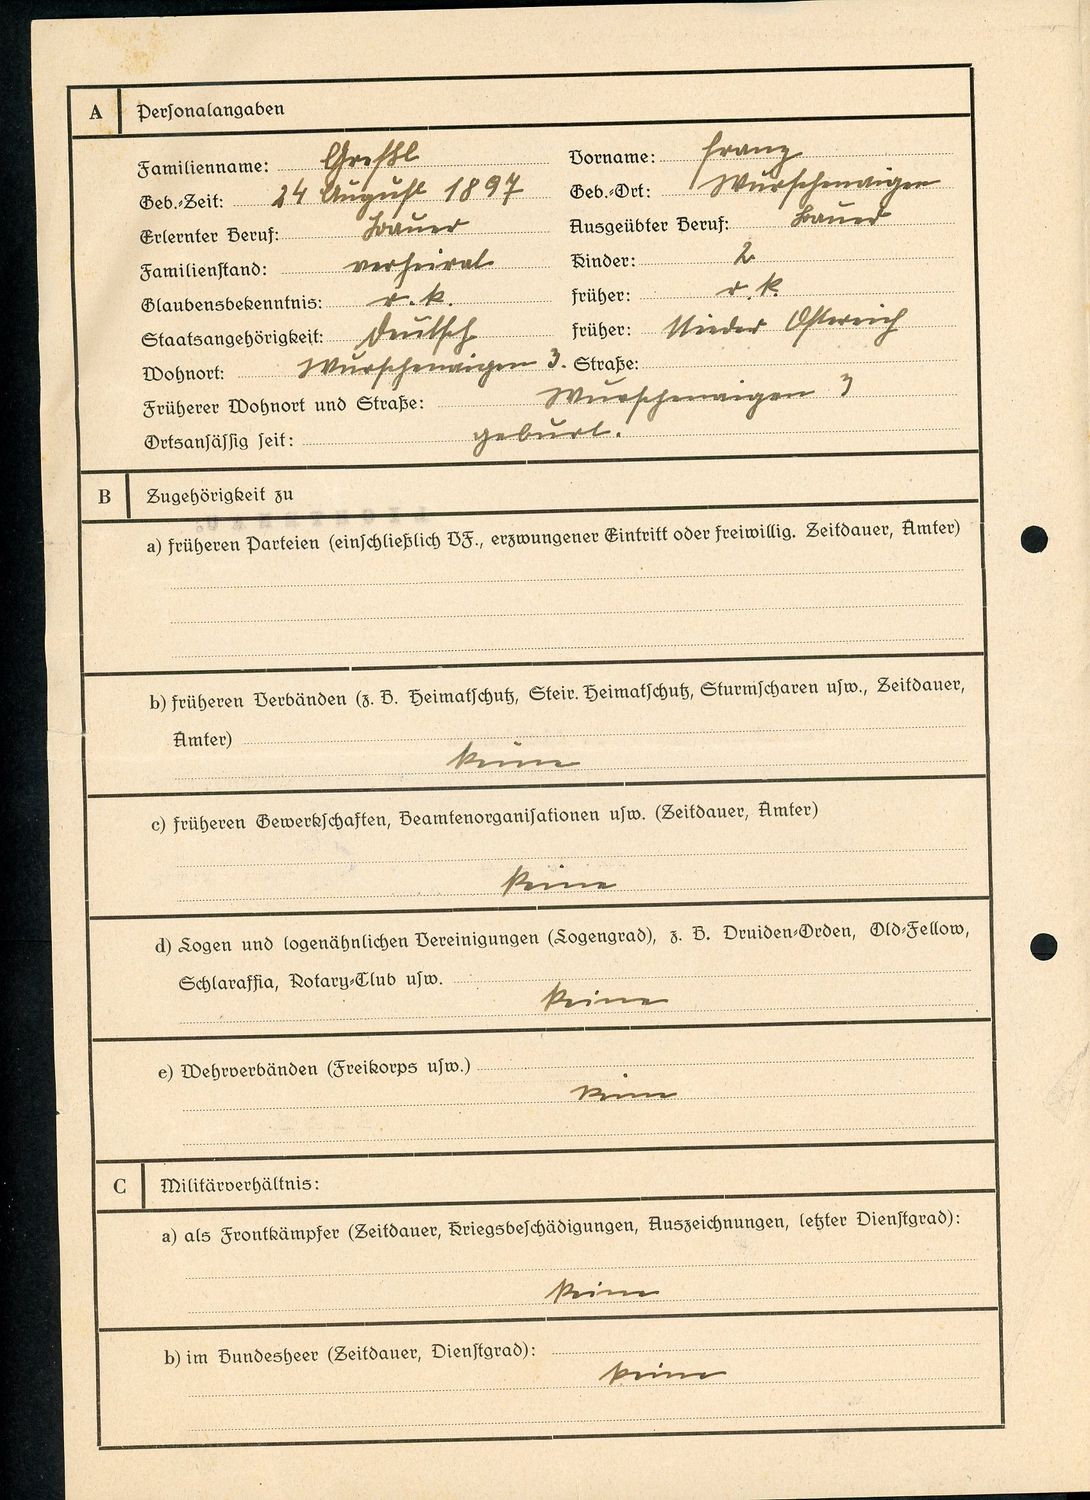 A Personalangaben
Familienname: Greßl Vorname: Franz
Geb.-Zeit: 24 August 1897 Geb.-Ort: Wurschenaigen
Erlernter Beruf: Bauer Ausgeübter Beruf: Bauer
Familienstand: verheirat Kinder: 2
Glaubensbekenntnis: r. k. früher: r. k.
Staatsangehörigkeit: Deutsch früher: Nieder Östereich
Wohnort: Wurschenaigen 3. Straße:
Früherer Wohnort und Straße: Wurschenaigen 3
Ortsansässig seit: geburt.
B Zugehörigkeit zu
a) früheren Parteien (einschließlich VF., erzwungener Eintritt oder freiwillig. Zeitdauer, Ämter)
b) früheren Verbänden (z. B. Heimatschutz, Steir. Heimatschutz, Sturmscharen usw., Zeitdauer,
Ämter)
keine
c) früheren Gewerkschaften, Beamtenorganisationen usw. (Zeitdauer, Ämter)
keine
d) Logen und logenähnlichen Vereinigungen (Logengrad), z. B. Druiden-Orden, Old-Fellow,
Schlaraffia, Rotary-Club usw.
keine
e) Wehrverbänden (Freikorps usw.)
keine
C Militärverhältnis:
a) als Frontkämpfer (Zeitdauer, Kriegsbeschädigungen, Auszeichnungen, letzter Dienstgrad):
keine
b) im Bundesheer (Zeitdauer, Dienstgrad):
keine